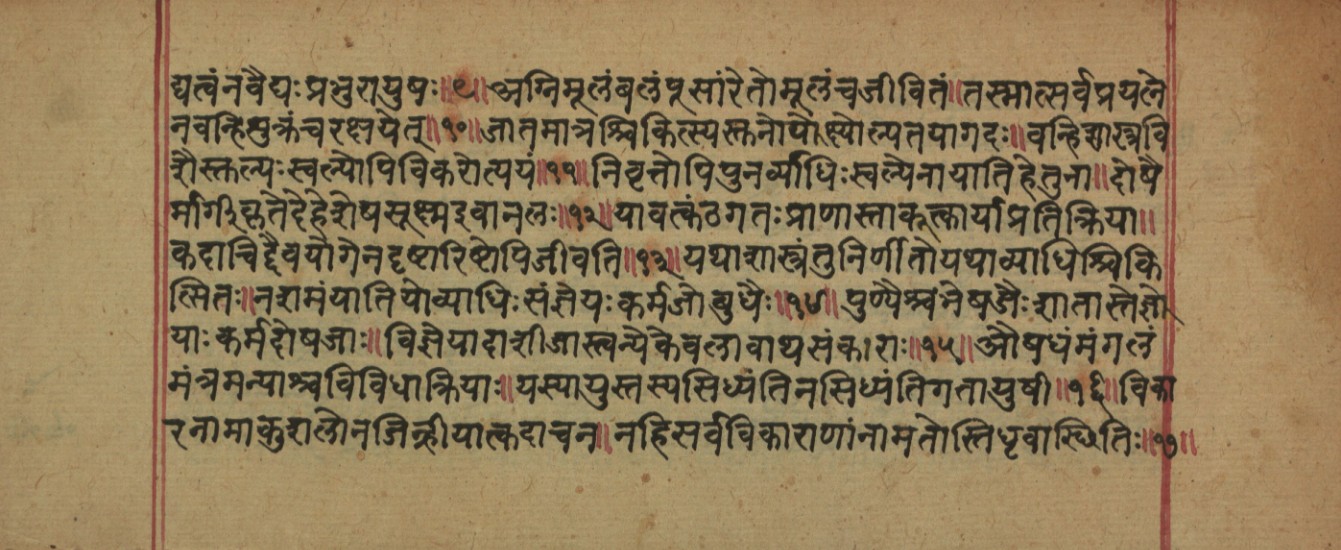 द्यत्वंनवैद्यःप्रभुरायुषः॥९॥अग्निमूलंबलंपूसांरेतोमूलंचजीवितं॥तस्मात्सर्वप्रयत्ने
नवन्हिशुक्रंचरक्षयेत्॥१०॥जातमात्रश्चिकित्स्यस्तनोपेक्ष्योल्पतयागदः॥वन्हिशस्त्रवि
शैस्तल्यःस्वल्पोपिविकरोत्ययं॥११॥निवृत्तोपिपुनर्व्याधिःस्वल्पेनायातिहेतुना॥दोषै
र्मार्गीकृतेदेहेशेषसूक्ष्मइवानलः॥१२॥यावत्कंठगतःप्राणास्तावत्कार्याप्रतिक्रिया॥
कदाचिद्दैवयोगेनदृष्टारिष्टोपिजीवति॥१३॥यथाशास्त्रंतुनिर्णीतोयथाव्याधिश्चिकि
त्सितः॥नशमंयातियोव्याधिःसंज्ञेयःकर्मजोबुधैः॥१४॥पुण्यैश्चभेषजैःशातास्तेज्ञे
याःकर्मदोषजाः॥विज्ञेयादोशजास्त्वन्यैकेवलावाथसंकाराः॥१५॥औषधंमंगलं
मंत्रमन्याश्चविविधाक्रियाः॥यस्यायुस्तस्यसिध्यंतिनसिध्यंतिगतायुषी॥१६॥विका
रनामाकुशलोनजिन्हीयात्कदाचन॥नहिसर्वविकाराणांनामतोस्तिधृवास्थितिः॥१७॥